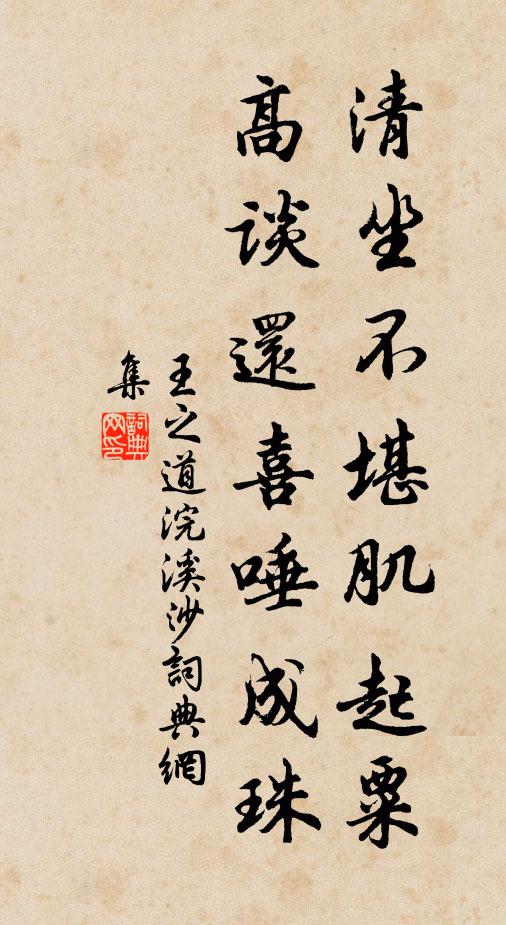 清坐不堪肌起粟
高談還喜唾成珠
王之道浣溪沙詞典網
集
詞典網印